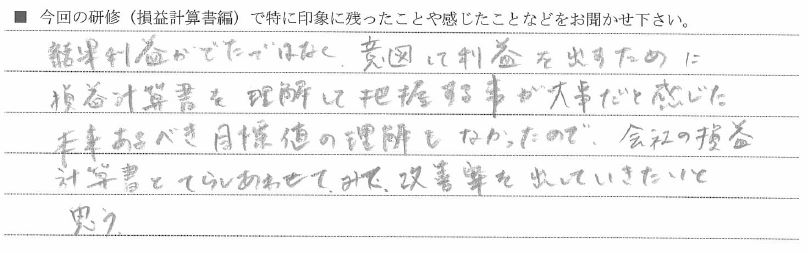 ■ 今回の研修（損益計算書編）で特に印象に残ったことや感じたことなどをお聞かせ下さい。
結果利益がでたではなく、意図して利益を出すために
損益計算書を理解して把握する事が大事だと感じた
本来あるべき目標値の理解もなかったので、会社の損益
計算書とてらしあわせて、みて、改善案を出していきたいと
思う。